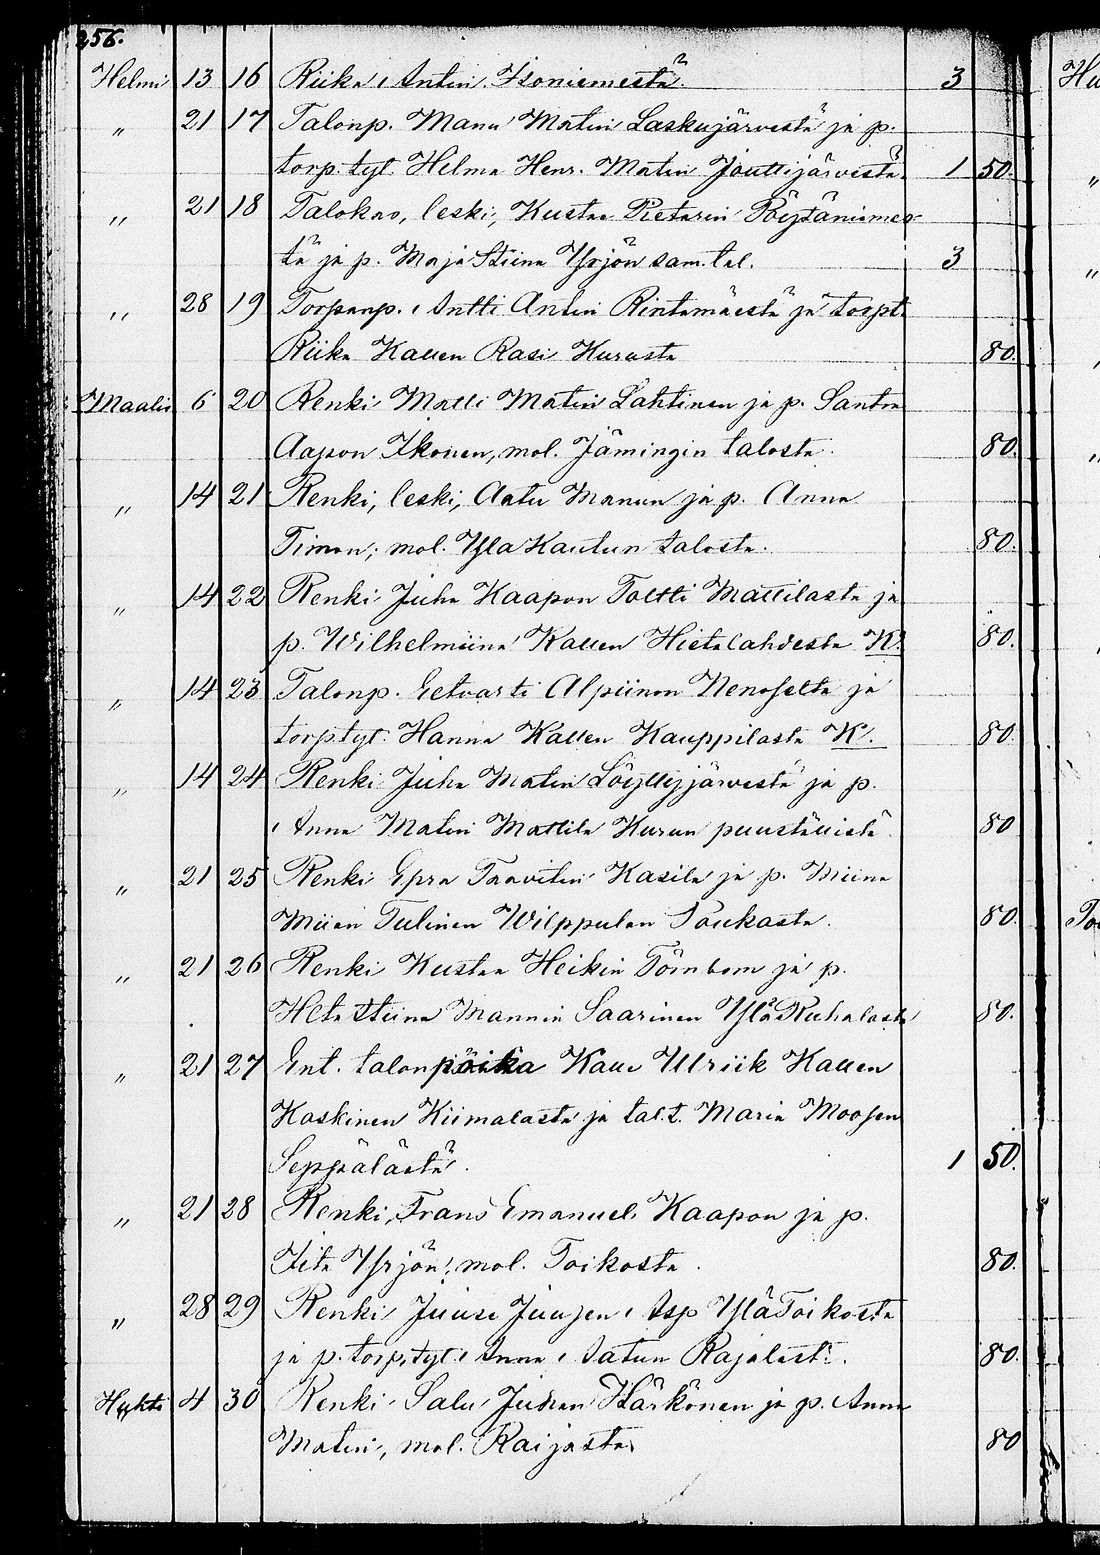 256.
Helmi 13 16 Riika Antin Isoniemestä. 3
" 21 17 Talonp. Manu Matin Laskujärvestä ja p.
torp.tyt. Helma Henr. Matin Jouttijärvestä. 1 50.
" 21 18 Talokas, leski, Kustaa Pietarin Pöytäniemes-
tä ja p. Maja Stiina Yrjön sam.tal. 3
" 28 19 Torpanp. Antti Antin Rintamäestä ja torpt.
Riika Kallen Rasi Kurusta 80.
Maalis 6 20 Renki Matti Matin Lahtinen ja p. Santra
Aapon Ikonen, mol. Jämingin talosta. 80.
" 14 21 Renki, leski, Aatu Manun ja p. Anna
Timon, mol. Yla Kautun talosta. 80.
" 14 22 Renki Juha Kaapon Toltti Mattilasta ja
p. Wilhelmiina Kallen Hietalahdesta K. 80.
" 14 23 Talonp. Eetvarti Alpiinon Nenoselta ja
torp.tyt. Hanna Kallen Kauppilasta K. 80.
" 14 24 Renki Juha Matin Löyttyjärvestä ja p.
Anna Matin Mattila Kurun puustellistä. 80
" 21 25 Renki Epra Taavitin Kasila ja p. Miina
Miian Tulinen Wilppulan Poukasta. 80.
" 21 26 Renki Kustaa Heikin Törnbom ja p.
Heta Stiina Mannin Saarinen Ylä Ruhalasta 80.
" 21 27 Ent. talonpoika Kalle Ulriik Kallen
Koskinen Kiimalasta ja tal.t. Maria Moosen
Seppälästä. 1 50.
" 21 28 Renki, Frans Emanuel Kaapon ja p.
Iita Yrjön, mol. Toikosta. 80.
" 28 29 Renki Juuse Juusen Asp YläToikosta
ja p. torp.tyt. Anna Aatun Rajalast. 80.
Huhti 4 30 Renki Salu Juhan Härkönen ja p. Anna
Matin, mol. Raijasta 80